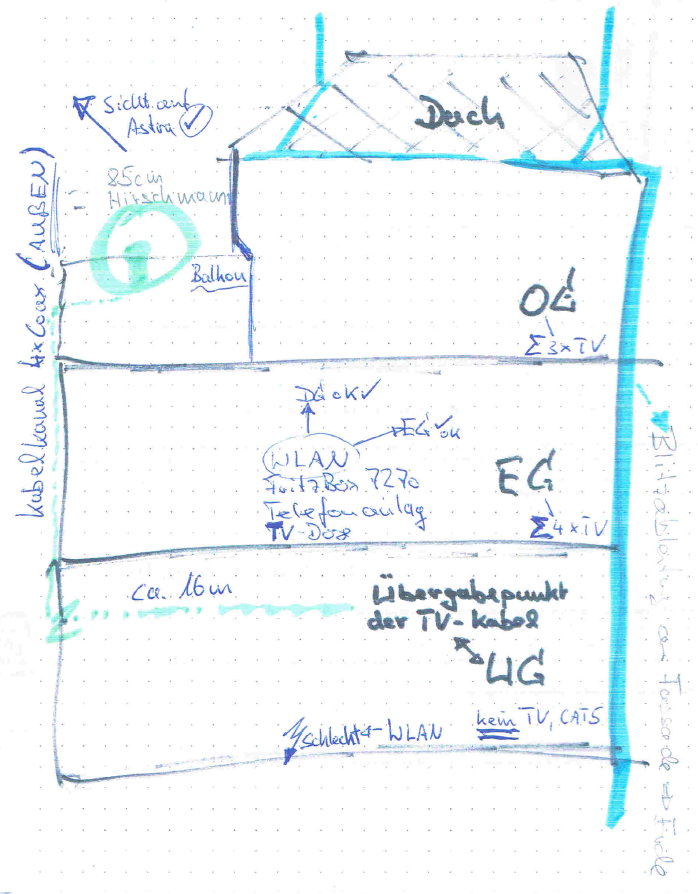 Sicht auf
Astra
Dach
85cm
Hirschmann
1
Kabelkanal 4x Coax (AUßEN)
Balkon
OG
Σ3xTV
DG OK
EG OK
WLAN
FritzBox 7270
Telefonanlag
TV-Dose
EG
Σ4xTV
Blitzableitung an Fassade ⇒ Erde
ca. 16m
Übergabepunkt
der TV-Kabel
UG
Schlechte WLAN
kein TV, CAT5